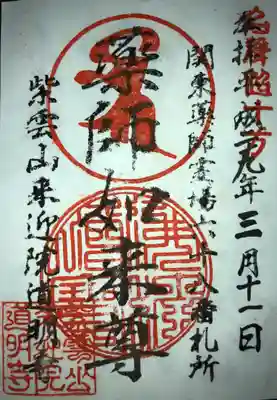 奉拝 平成廿九年三月十一日
関東薬師霊場六十八番札所
薬師如来尊
紫雲山来迎院道明寺
道明寺